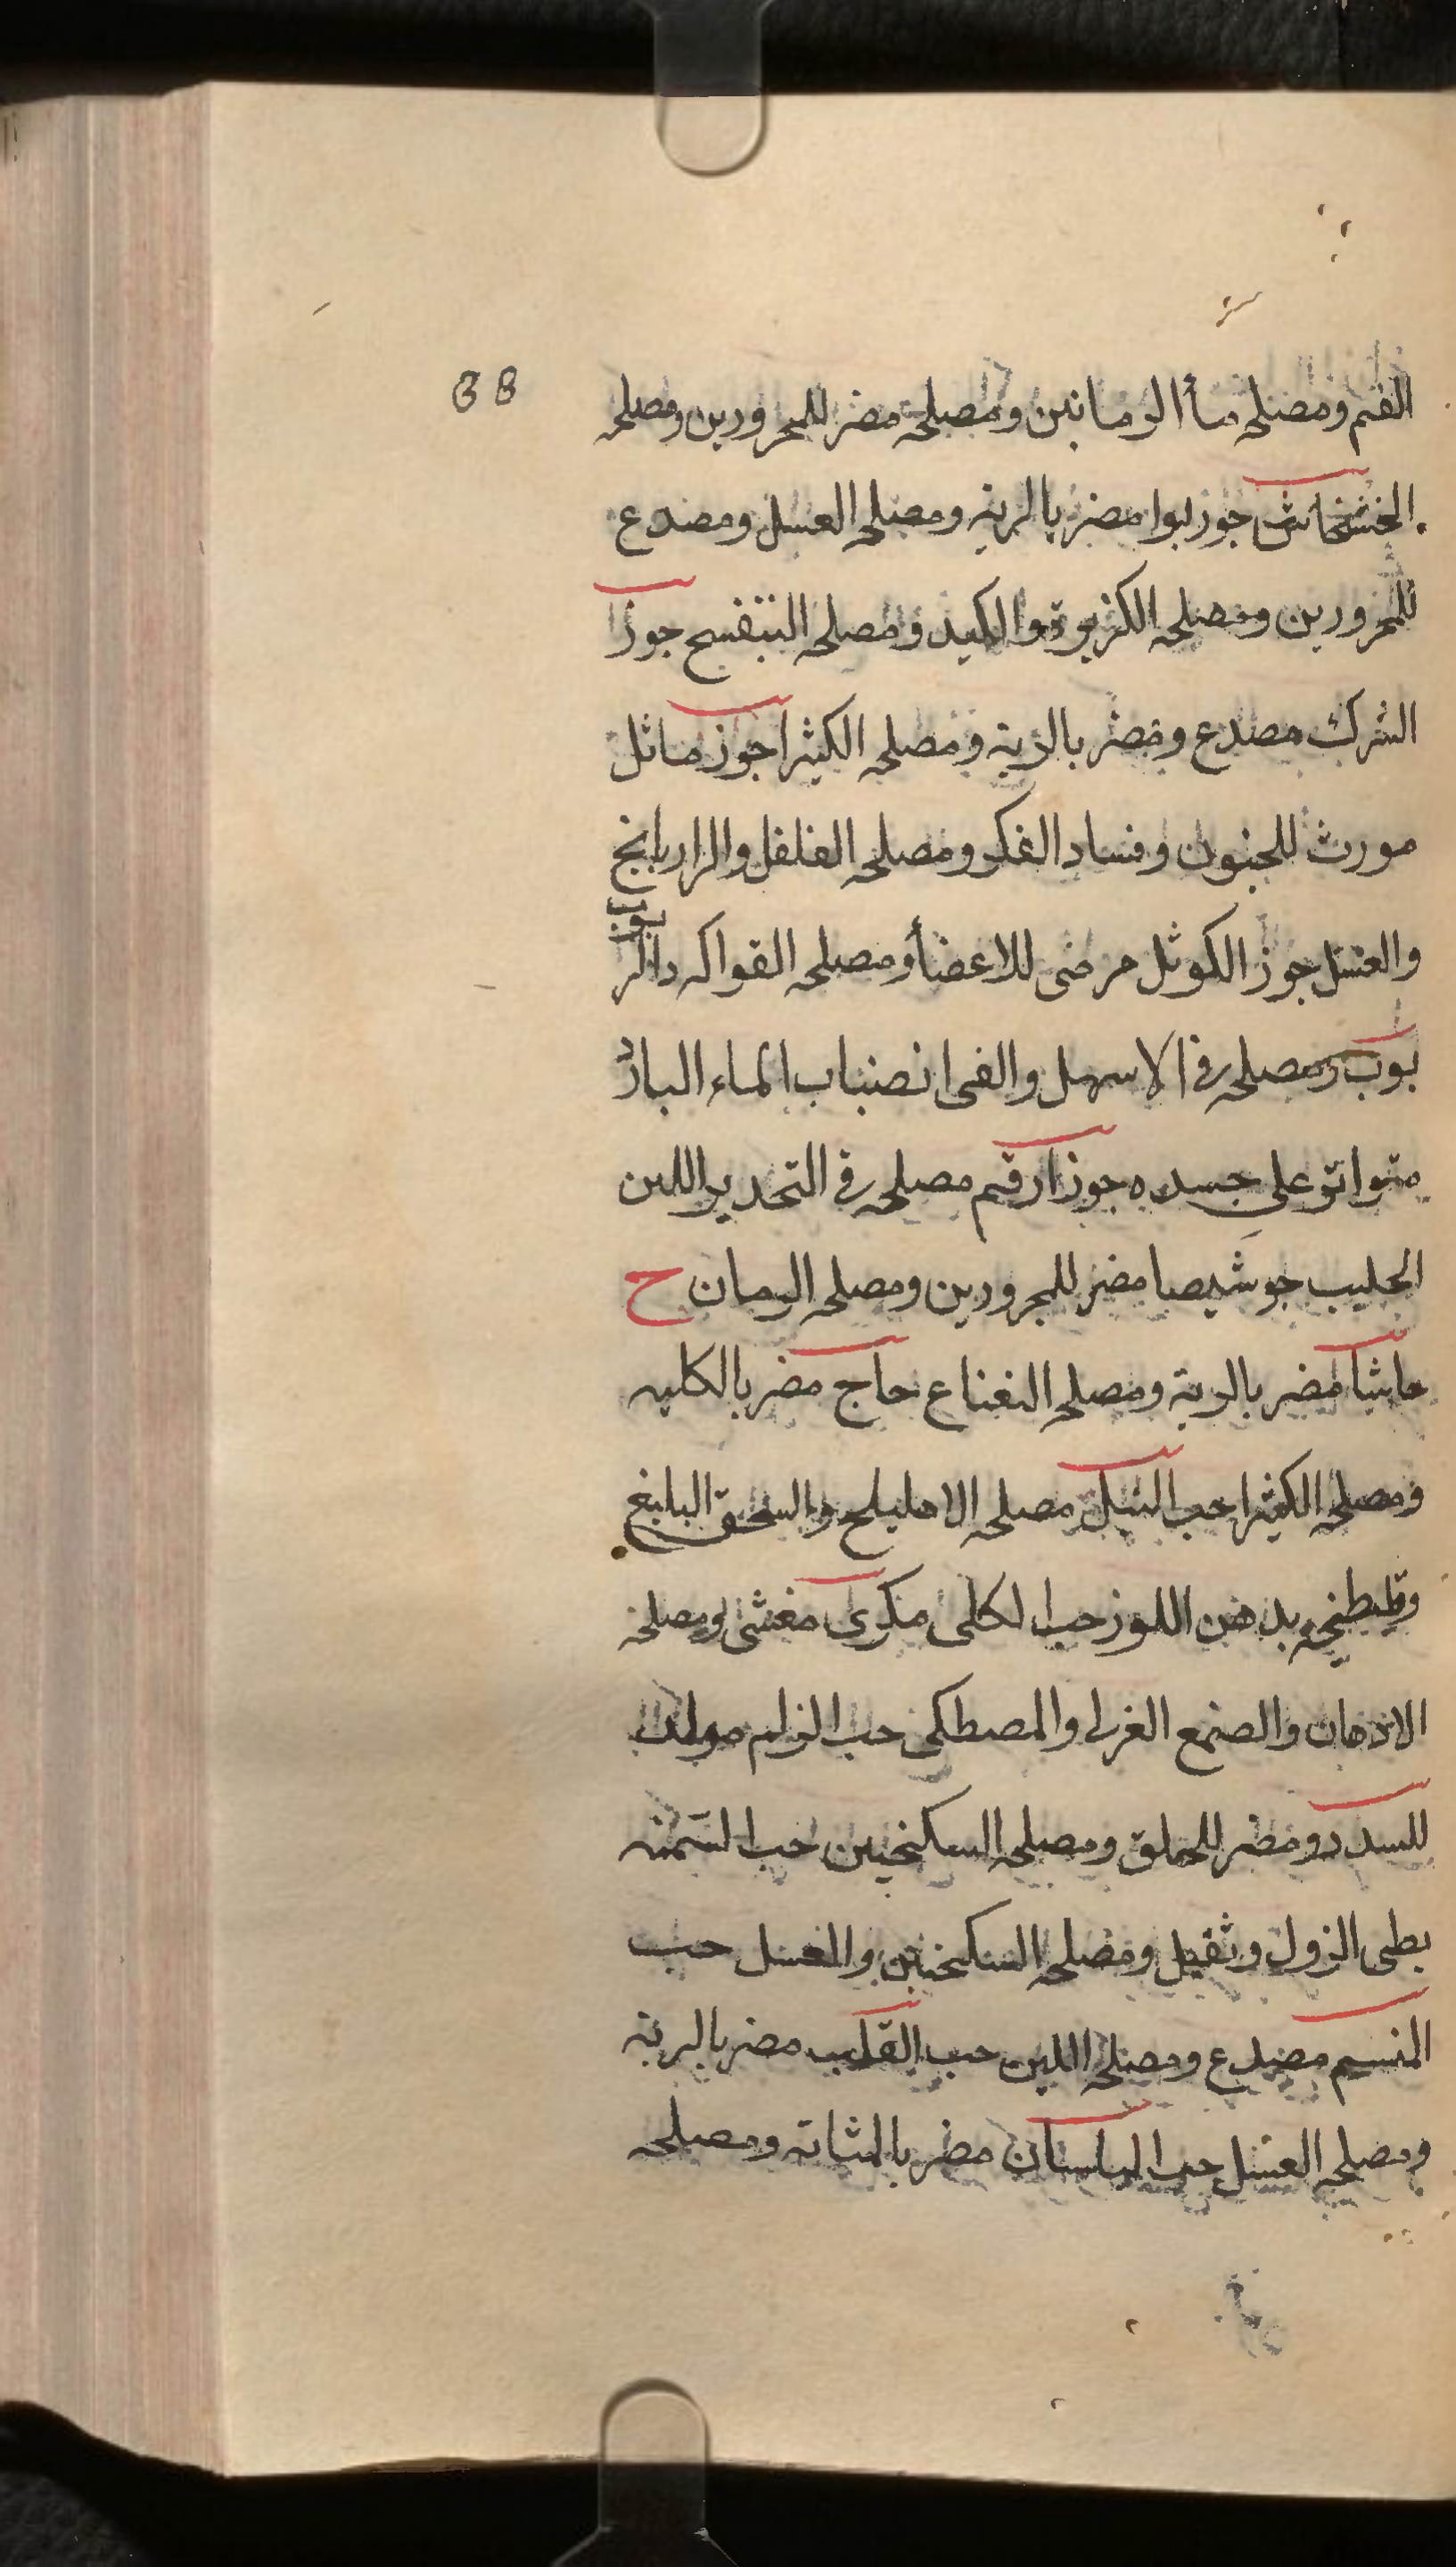 38
الفم ومصلحه مأ الرمانين ومصلحه مضر للمحرورين ومصلحه
الخشخاش جوز بوا مضر بالرية ومصلحه العسل ومصدع
للمحرورين ومصلحه الكزبرة والكبد ومصلحه البنفسج جوز
الشرك مصدع ومضر بالرية ومصلحه الكثيرا جوز ماثل
مورث للجنون وفساد الفكر ومصلحه الفلفل والرازيانج
والعسل جوز الكوثل مرضى للاعضأ ومصلحه الفواكه دالر
بوب
بوب ومصلحه في الاسهل والقى انصباب الماء البارد
متواتر على جسده جوز ارقم مصلحه في التخدير اللبن
الحليب جوشيصا مضر للمحرورين ومصلحه الرمان ح
حاشا مضر بالرية ومصلحه النعناع حاج مضر بالكليه
ومصلحه الكثيرا حب النيل مصلحه الاهليلج والسحق البليغ
بدهن اللوز حب الكلى مكرب مغشى ومصلحه
الادهان والصمغ العربى والمصطكى حب الزلم مولد
للسدد ومضر للحلق ومصلحه السكنجبين حب السمنه
بطى النزول وثقيل ومصلحه السكنجبين والعسل حب
المنسم مصدع ومصلحه اللبن حب القلب مضر بالرية
ومصلحه العسل حب البلسان مضر بالمثانه ومصلحه